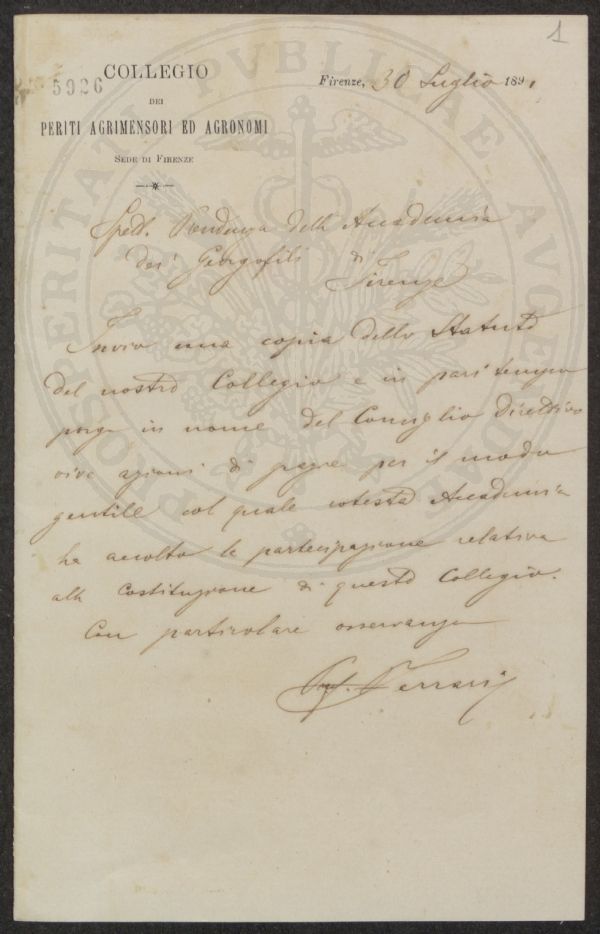 1
5926
COLLEGIO
DEI
PERITI AGRIMENSORI ED AGRONOMI
SEDE DI FIRENZE
Firenze, 30 Luglio 1891
Spett. Presidenza della Accademia
dei Georgofili di Firenze
Invio una copia dello Statuto
del nostro Collegio e in pari tempo
porgo in nome del Consiglio Direttivo
vive azioni di grazie per il modo
gentile col quale cotesta Accademia
ha accolto la partecipazione relativa
alla Costituzione di questo Collegio.
Con particolare osservanza
Ferrari
PROSPERITATI PUBLICAE AUGENDAE